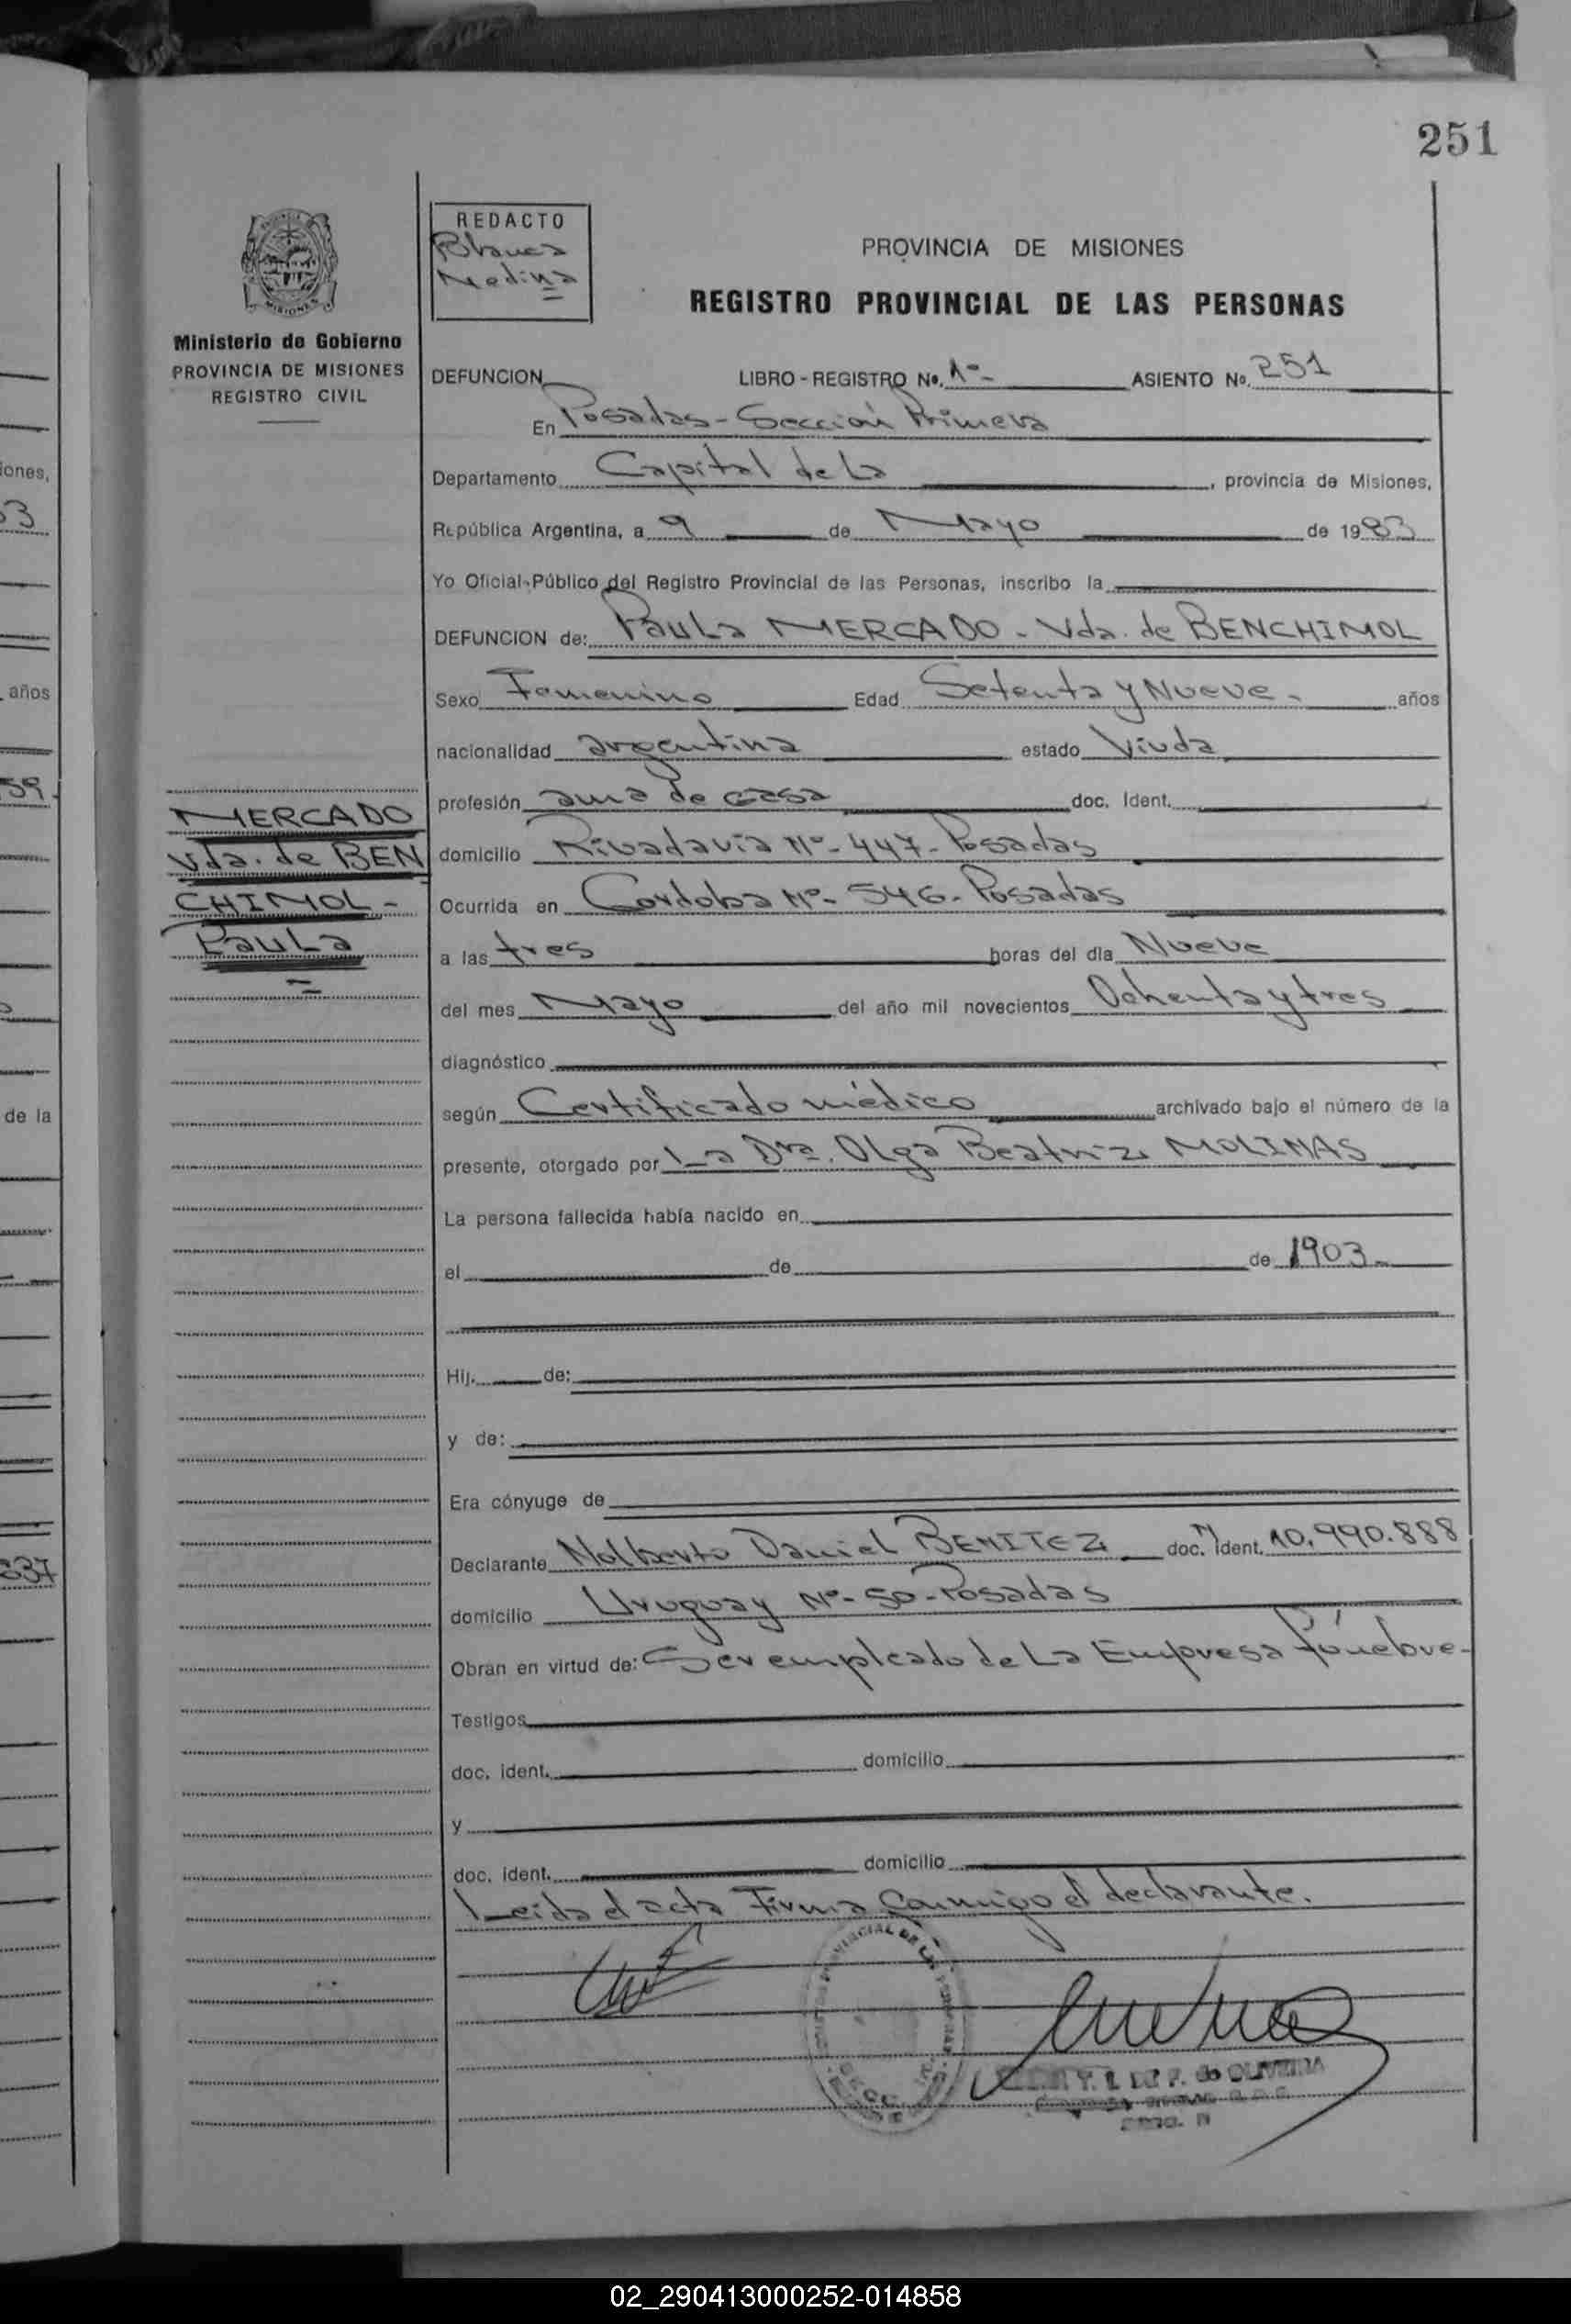 251
REDACTO
Blanca
Medina
PROVINCIA DE MISIONES
REGISTRO PROVINCIAL DE LAS PERSONAS
MISIONES
Ministerio de Gobierno
PROVINCIA DE MISIONES
REGISTRO CIVIL
DEFUNCION LIBRO - REGISTRO No. 1º- ASIENTO No. 251
En Posadas - Sección Primera
Departamento Capital de La , provincia de Misiones,
República Argentina, a 9 de Mayo de 1983
Yo Oficial Público del Registro Provincial de las Personas, inscribo la
DEFUNCION de: Paula MERCADO - Vda. de BENCHIMOL
Sexo Femenino Edad Setenta y Nueve - años
nacionalidad argentina estado Viuda
profesión ama de casa doc. Ident.
domicilio Rivadavia Nº- 447- Posadas
Ocurrida en Cordoba Nº- 546- Posadas
a las tres horas del día Nueve
del mes Mayo del año mil novecientos Ochenta y tres
diagnóstico
según Certificado médico archivado bajo el número de la
presente, otorgado por La Dra. Olga Beatriz MOLINAS
La persona fallecida había nacido en
el de de 1903-
Hij. de:
y de:
Era cónyuge de
Declarante Nolberto Daniel BENITEZ doc. Ident. 10.990.888
domicilio Uruguay Nº- 50- Posadas
Obran en virtud de: Ser empleado de La Empresa fúnebre-
Testigos
doc. ident. domicilio
y
doc. ident. domicilio
Leida el acta Firma Conmigo el declarante.
de OLIVEIRA
MERCADO
Vda. de BEN
CHIMOL -
Paula
iones,
63
años
59.
de la
837
02_290413000252-014858